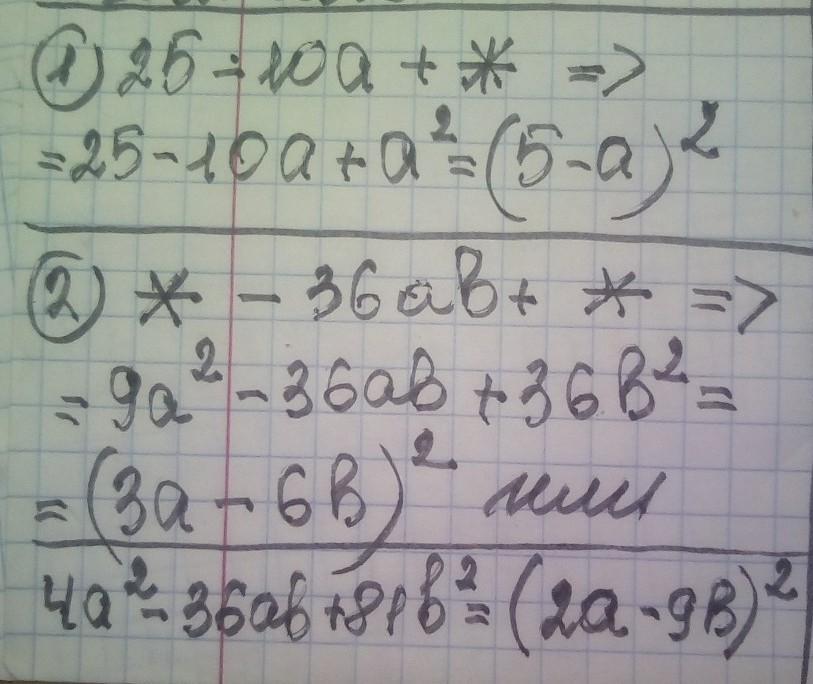 ① 25 - 10a + * =>
= 25 - 10a + a² = (5 - a)²
② * - 36ab + * =>
= 9a² - 36ab + 36b² =
= (3a - 6b)² или
4a² - 36ab + 81b² = (2a - 9b)²